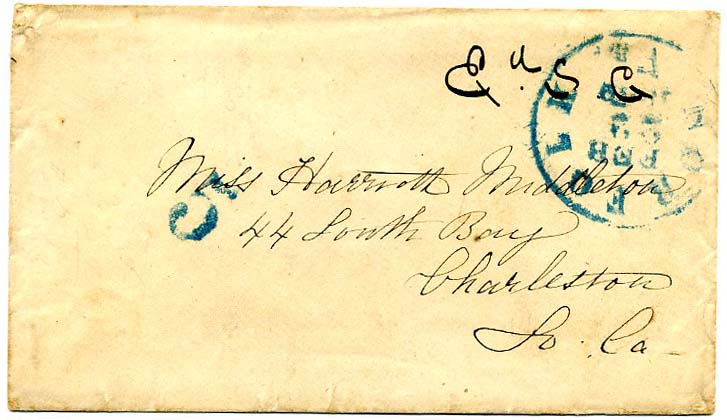 Miss Harriott Middleton
44 South Bay
Charleston
So. Ca